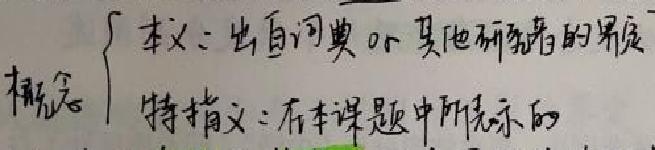 本义：出自词典 or 其他研究者的界定
概念
特指义：在本课题中所表示的